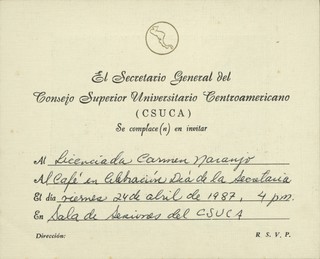 El Secretario General del
Consejo Superior Universitario Centroamericano
(CSUCA)
Se complace(n) en invitar
Al Licenciada Carmen Naranjo
Al Café en Celebración Día de la Secretaria
El día viernes 24 de abril de 1987, 4 p.m.
En Sala de Sesiones del CSUCA
Dirección: R. S. V. P.